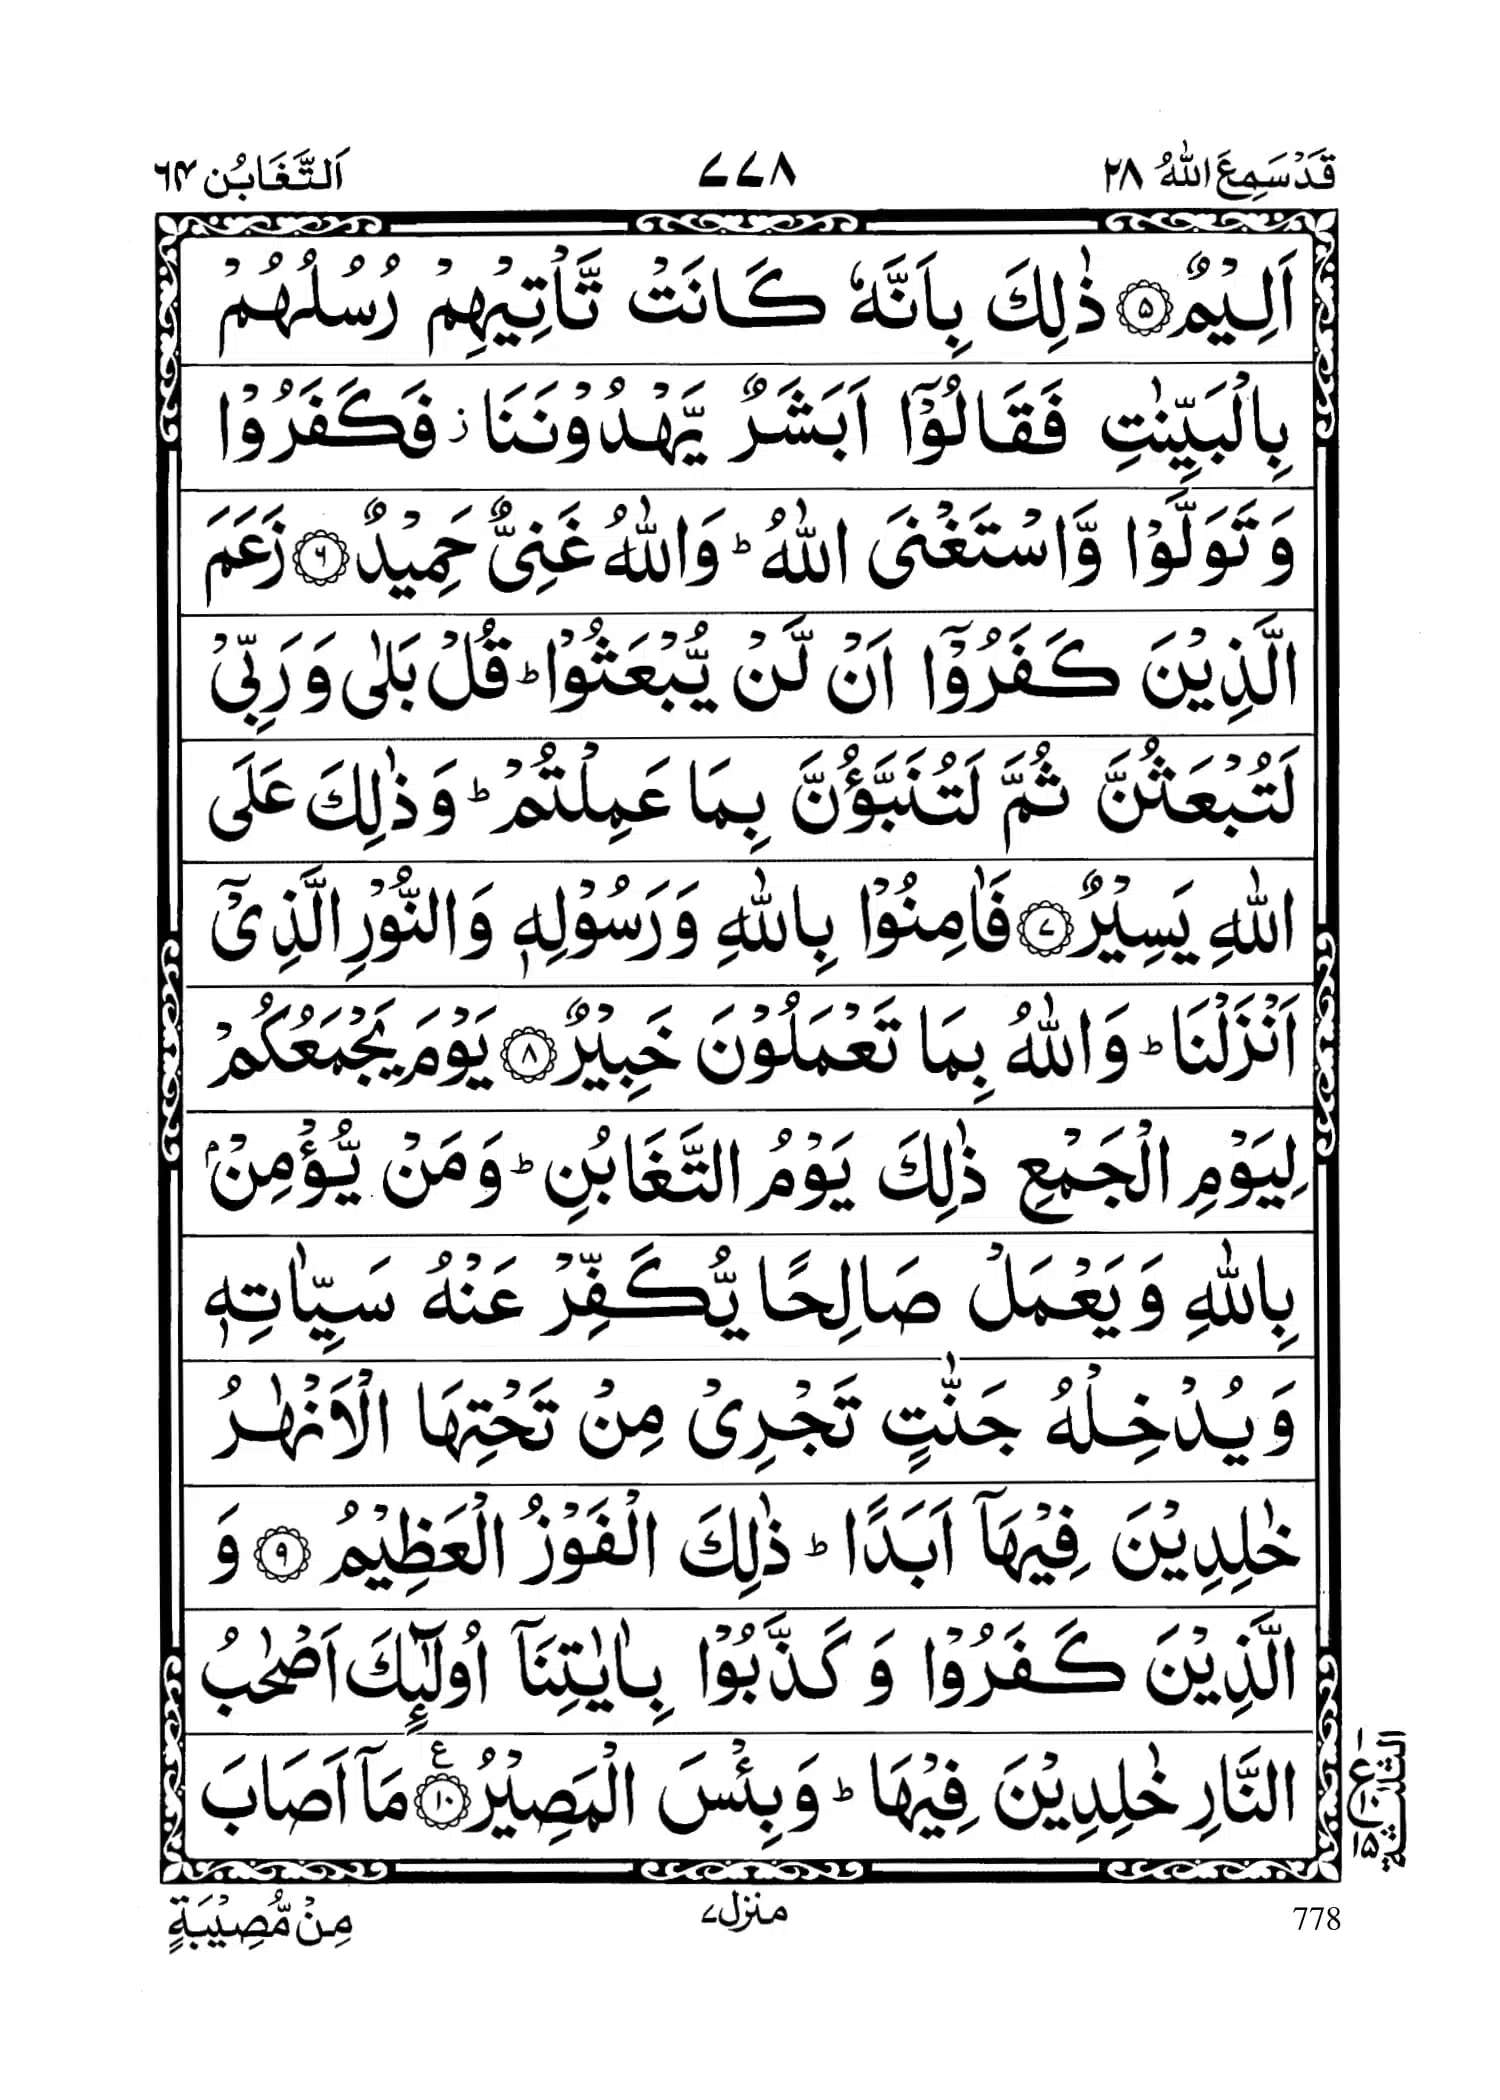 قَدْ سَمِعَ اللّٰهُ ٢٨
٧٧٨
اَلتَّغَابُن ٦٤
اَلِيْمٌ ۝٥ ذٰلِكَ بِاَنَّهٗ كَانَتْ تَّاْتِيْهِمْ رُسُلُهُمْ
بِالْبَيِّنٰتِ فَقَالُوْۤا اَبَشَرٌ يَّهْدُوْنَنَا ز فَكَفَرُوْا
وَتَوَلَّوْا وَّاسْتَغْنَى اللّٰهُ ؕ وَاللّٰهُ غَنِىٌّ حَمِيْدٌ ۝٦ زَعَمَ
الَّذِيْنَ كَفَرُوْۤا اَنْ لَّنْ يُّبْعَثُوْا ؕ قُلْ بَلٰى وَرَبِّىْ
لَتُبْعَثُنَّ ثُمَّ لَتُنَبَّؤُنَّ بِمَا عَمِلْتُمْ ؕ وَذٰلِكَ عَلَى
اللّٰهِ يَسِيْرٌ ۝٧ فَاٰمِنُوْا بِاللّٰهِ وَرَسُوْلِهٖ وَالنُّوْرِ الَّذِىْۤ
اَنْزَلْنَا ؕ وَاللّٰهُ بِمَا تَعْمَلُوْنَ خَبِيْرٌ ۝٨ يَوْمَ يَجْمَعُكُمْ
لِيَوْمِ الْجَمْعِ ذٰلِكَ يَوْمُ التَّغَابُنِ ؕ وَمَنْ يُّؤْمِنْۢ
بِاللّٰهِ وَيَعْمَلْ صَالِحًا يُّكَفِّرْ عَنْهُ سَيِّاٰتِهٖ
وَيُدْخِلْهُ جَنّٰتٍ تَجْرِىْ مِنْ تَحْتِهَا الْاَنْهٰرُ
خٰلِدِيْنَ فِيْهَاۤ اَبَدًا ؕ ذٰلِكَ الْفَوْزُ الْعَظِيْمُ ۝٩ وَ
الَّذِيْنَ كَفَرُوْا وَكَذَّبُوْا بِاٰيٰتِنَاۤ اُولٰٓئِكَ اَصْحٰبُ
النَّارِ خٰلِدِيْنَ فِيْهَا ؕ وَبِئْسَ الْمَصِيْرُ ۝١٠ ع مَاۤ اَصَابَ
الثلٰثة
ع
١٠
١٥
778
منزل ٧
مِنْ مُّصِيْبَةٍ